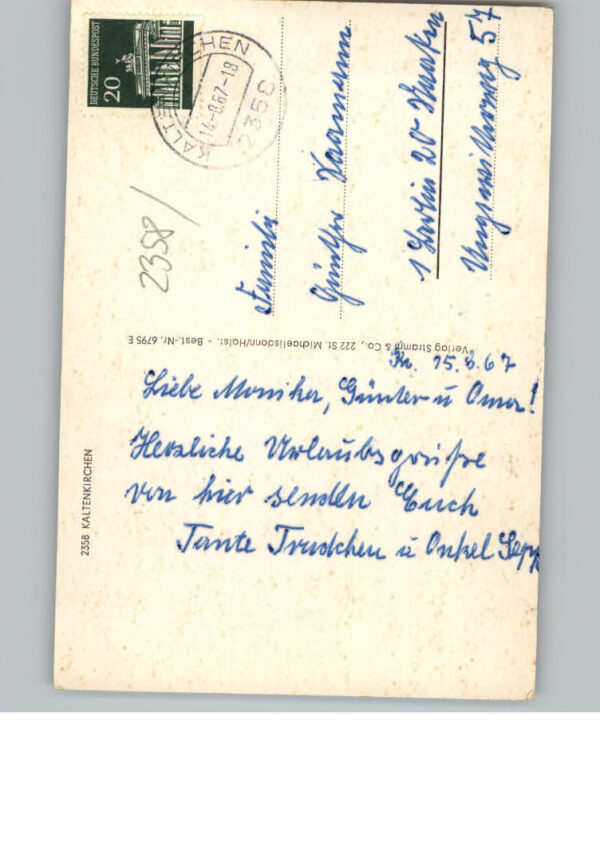 DEUTSCHE BUNDESPOST
20
KALTENKIRCHEN
14-8.67-18
2358
2358/
Familie
Günther
1 Berlin 20
57
Verlag Stramm & Co., 222 St. Michaelisdonn/Holst. - Best.-Nr. 6795 E
15.8.67
Liebe Monika, Günter u Oma!
Herzliche Urlaubsgrüße
von hier senden Euch
Tante Trudchen u Onkel Sepp
2358 KALTENKIRCHEN